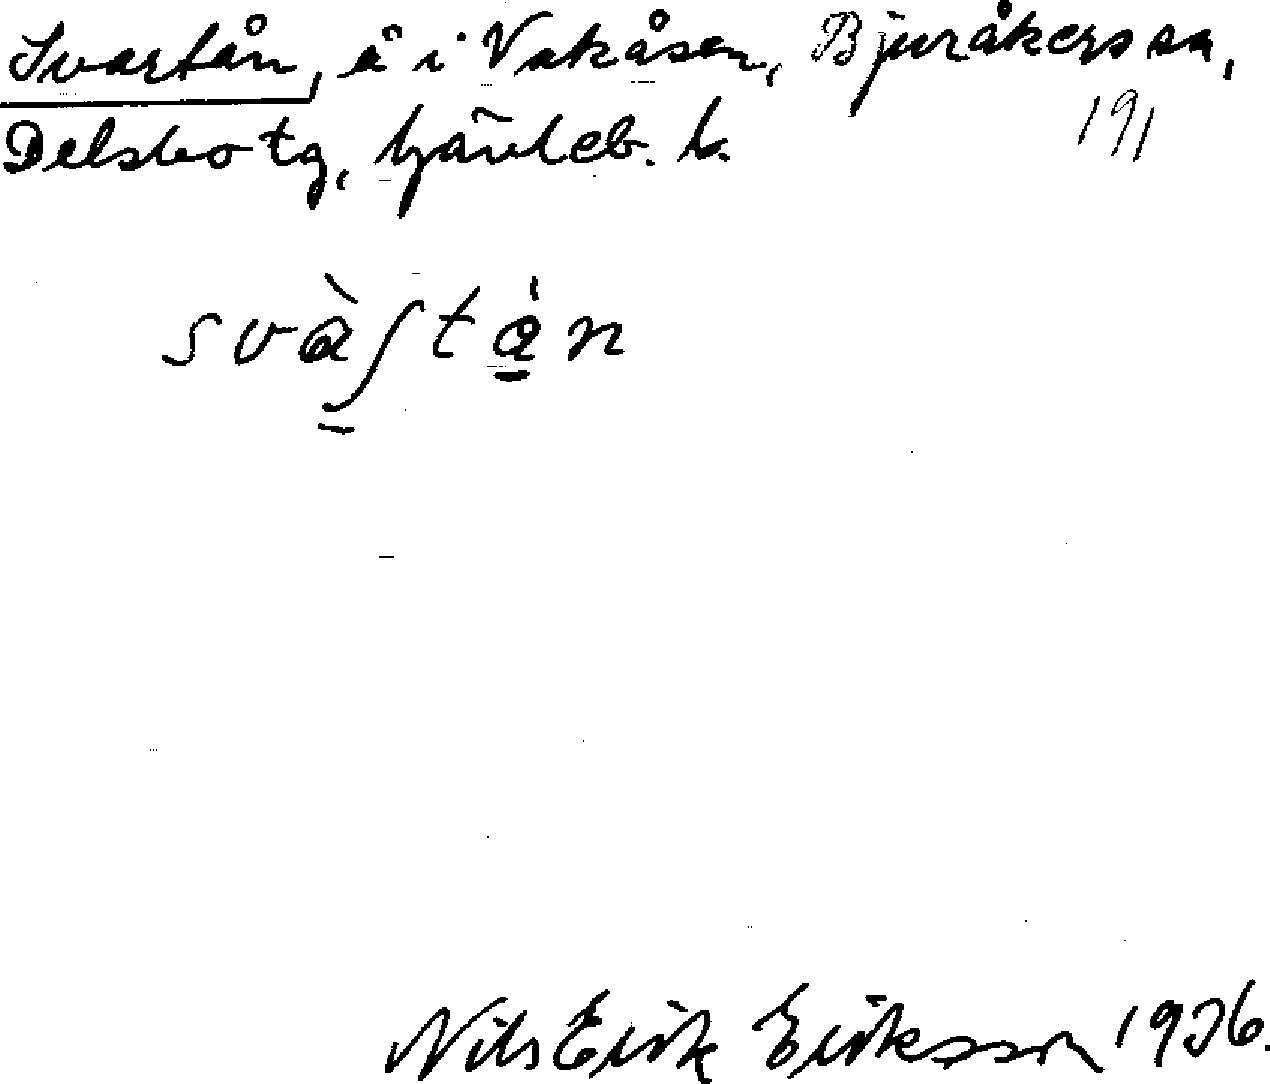 Svartån, å i Vakåsen, Bjuråkers sn,
Delsbo tg, Gävleb. l.
191
svàʃtån
Nils Erik Eriksson 1936.